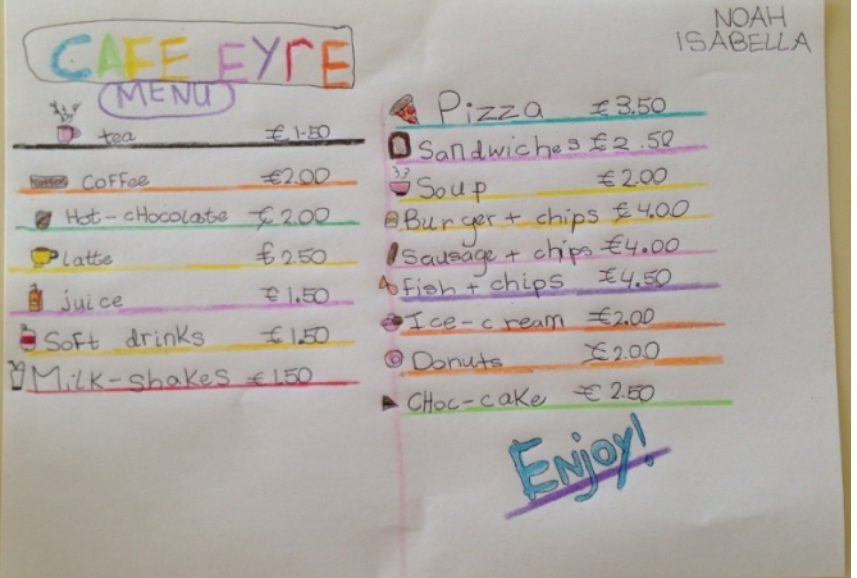 CAFE EYrE
MENU
tea € 1.50
Coffee €2.00
Hot-cHocolate € 2.00
latte € 2.50
juice € 1.50
Soft drinks € 1.50
Milk-shakes € 1.50
NOAH
ISABELLA
Pizza € 3.50
Sandwiches € 2.50
Soup € 2.00
Burger + chips € 4.00
Sausage + chips €4.00
Fish + chips €4.50
Ice-cream €2.00
Donuts €2.00
CHoc-cake € 2.50
Enjoy!